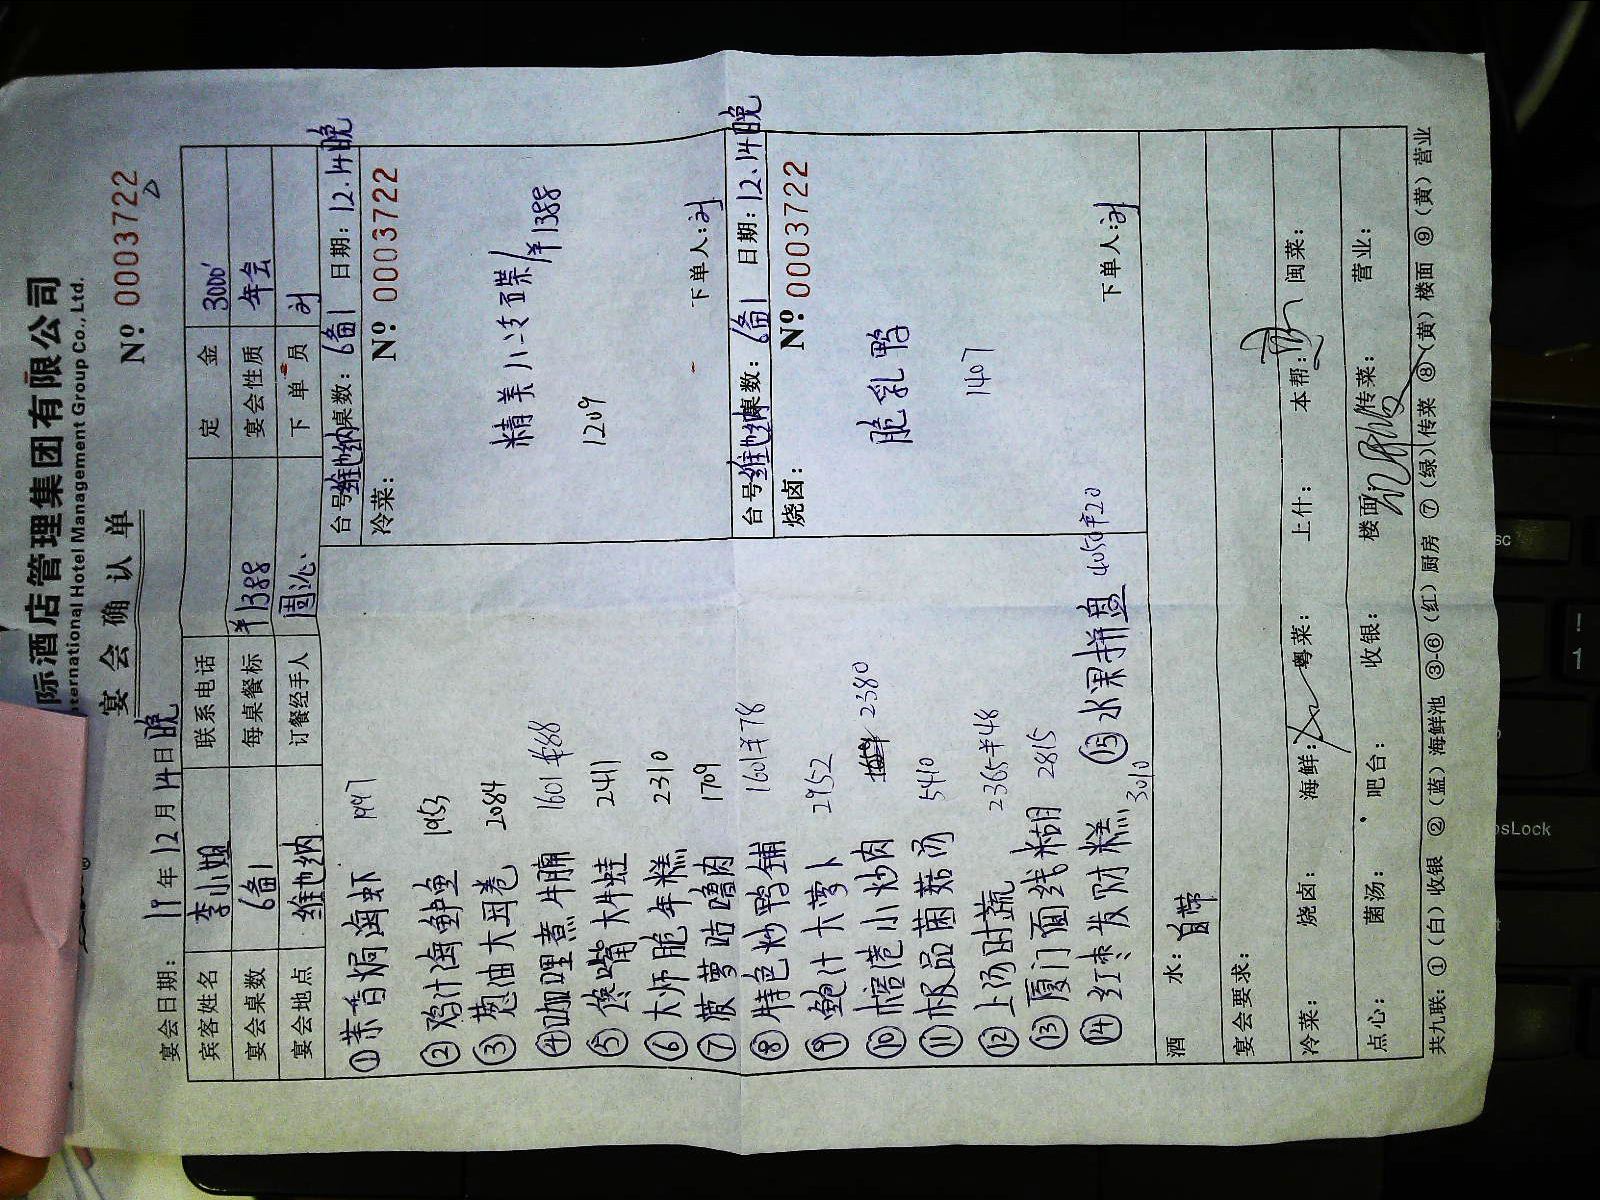 际酒店管理集团有限公司
ternational Hotel Management Group Co., Ltd.
宴会确认单
№ 0003722
宴会日期: 19年12月14日晚
宾客姓名 李小姐 联系电话 定金 3000
宴会桌数 6备1 每桌餐标 ¥1388 宴会性质 年会
宴会地点 维也纳 订餐经手人 下单员
①茶香焗海虾 1997
② 鸡汁海鲈鱼 1953
③ 葱油大 卷 2084
④咖喱煮牛腩 1601 ¥88
⑤ 馋嘴大牛蛙 2411
⑥大师脆年糕 2310
⑦ 菠萝咕噜肉 1709
⑧ 特色炒鸭铺 1601 ¥78
⑨ 鲍汁大萝卜 2952
⑩ 小炒肉 2380
⑪ 极品菌菇汤 5410
⑫ 上汤时蔬 2365 ¥48
⑬ 厦门面线糊 2815
⑭ 红枣发财糕 3010
⑮ 水果拼盘 4050 ¥20
台号: 维也纳 桌数: 6备1 日期: 12.14晚
冷菜: № 0003722
精美八冷碟/¥1388
1209
下单人:
台号: 维也纳 桌数: 6备1 日期: 12.14晚
烧卤: № 0003722
脆乳鸭
1407
下单人:
酒水: 自带
宴会要求:
冷菜: 烧卤: 海鲜: 粤菜: 上什: 本帮: 闽菜:
点心: 菌汤: 吧台: 收银: 楼面: 传菜: 营业:
共九联: ①(白)收银 ②(蓝)海鲜池 ③-⑥(红)厨房 ⑦(绿)传菜 ⑧(黄)楼面 ⑨(黄)营业
sc
psLock